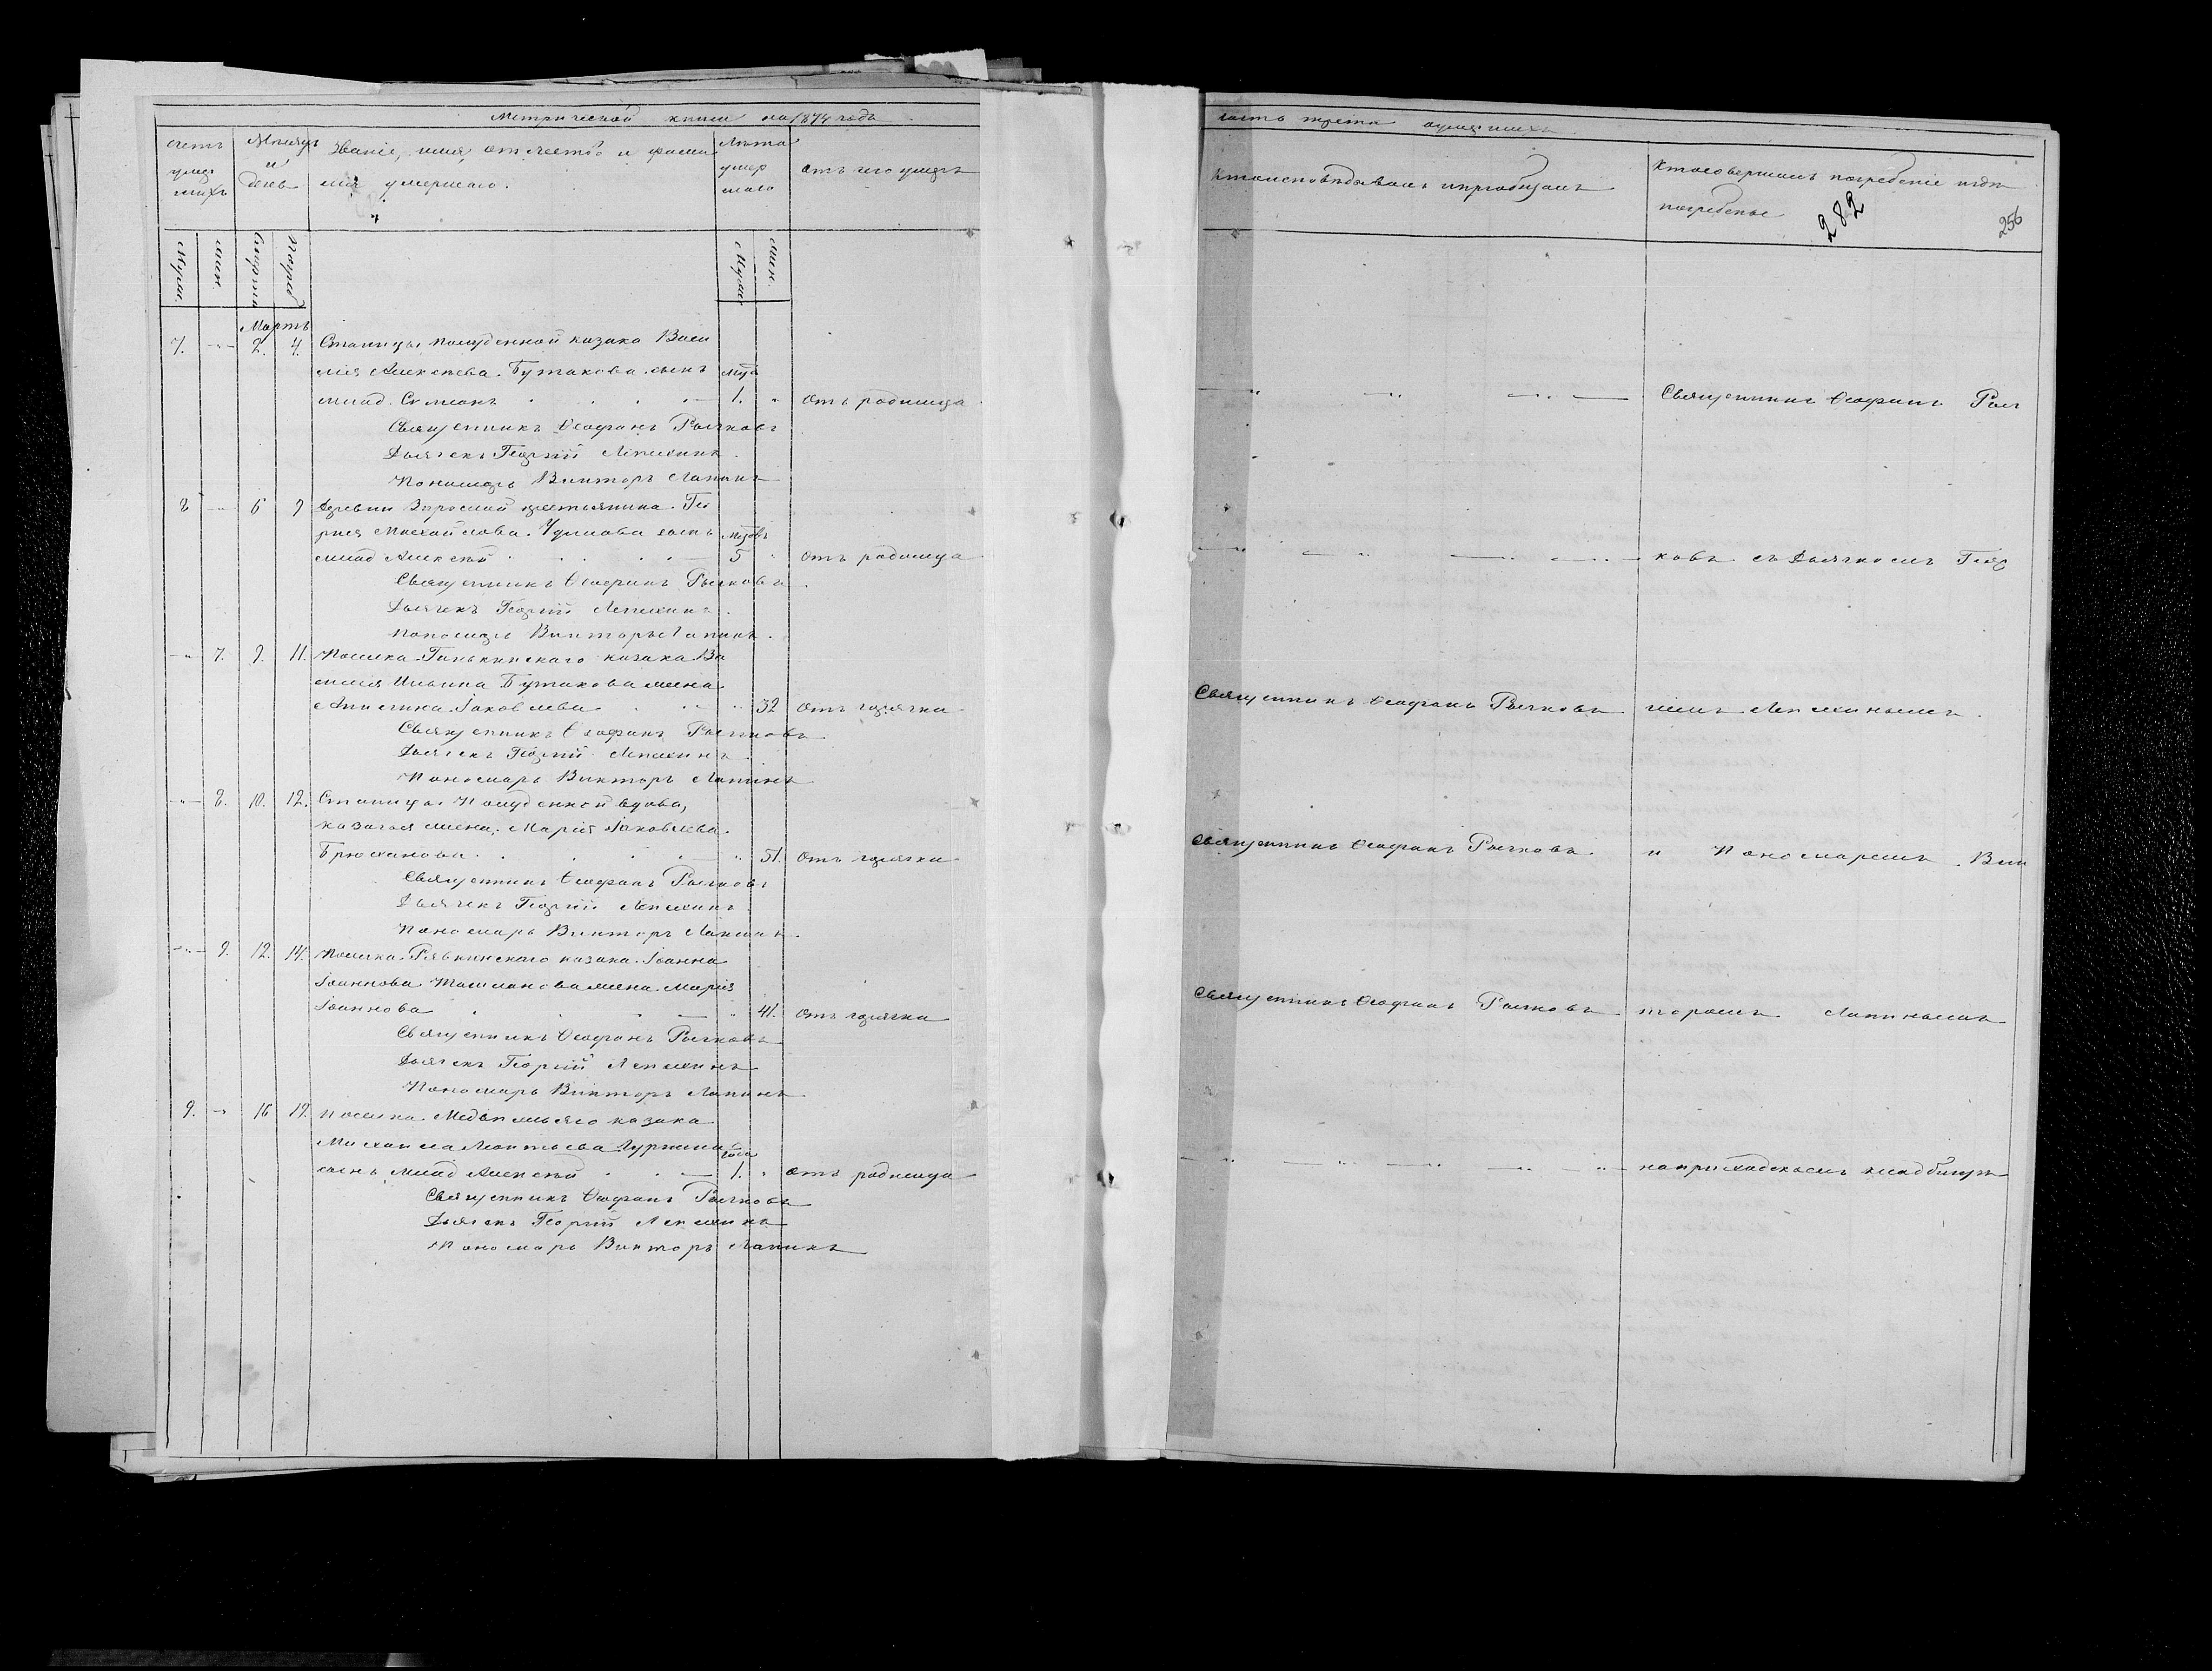 Метрической книги на 1874 годъ
Счетъ умершихъ
Мѣсяцъ и день
Званіе, имя, отчество и фамилія умершаго.
Лѣта умершаго
Отъ чего умеръ
Муж.
Жен.
Смерти
Погреб
Муж.
Жен.
Мартъ
7. - " - 2. 4. Станицы Полуденной казака Васи
лія Алексѣева Бутакова сынъ
млад. Симеонъ 1. " Отъ родимца
Священникъ Ѳеофанъ Рычковъ
Дьячекъ Георгій Лепехинъ
Пономарь Викторъ Лапинъ
8 — 6 9 Деревни крестьянина Ге
ргія Михайлова сынъ
млад Алексѣй 5 " Отъ родимца
Священникъ Ѳеофанъ Рычковъ
Дьячекъ Георгій Лепехинъ
Пономарь Викторъ Лапинъ.
- " 7. 9. 11. Поселка Ганькинскаго казака Ва
силія Ильина Бутакова жена
Іаковлева " 32 Отъ горячки
Священникъ Ѳеофанъ Рычковъ
Дьячекъ Георгій Лепехинъ
Пономарь Викторъ Лапинъ
- " - 8. 10. 12. Станицы Полуденной вдова,
казачья жена, Марія Іаковлева
Брюханова " 51. Отъ горячки
Священникъ Ѳеофанъ Рычковъ
Дьячекъ Георгій Лепехинъ
Пономарь Викторъ Лапинъ.
- " - 9. 12. 14. Поселка казака Іоанна
Іоаннова жена Марія
Іоаннова " 41. Отъ горячки
Священникъ Ѳеофанъ Рычковъ
Дьячекъ Георгій Лепехинъ
Пономарь Викторъ Лапинъ
9. - " 16 19. Поселка казака
Михаила Леонтьева
сынъ млад Алексѣй года 1. " Отъ родимца
Священникъ Ѳеофанъ Рычковъ
Дьячекъ Георгій Лепехинъ
Пономарь Викторъ Лапинъ
часть третія о умершихъ
Кто исповѣдывалъ и пріобщалъ
Кто совершалъ погребеніе и гдѣ
погребены
282
256
Священникъ Ѳеофанъ Рыч
ковъ съ Дьячкомъ Геор
Священникъ Ѳеофанъ Рычковъ
гіемъ Лепехинымъ
Священникъ Ѳеофанъ Рычковъ
и Пономаремъ Вик
Священникъ Ѳеофанъ Рычковъ
торомъ Лапинымъ
на приходскомъ кладбищѣ